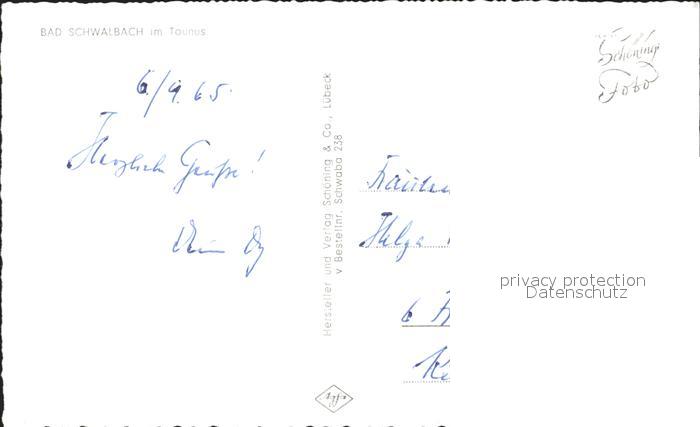 BAD SCHWALBACH im Taunus
6/9.65.
Herzliche Grüße!
Dein
Hersteller und Verlag Schöning & Co., Lübeck
v Bestellnr. Schwaba 238
Schöning
Foto
Helga
6
privacy protection
Datenschutz